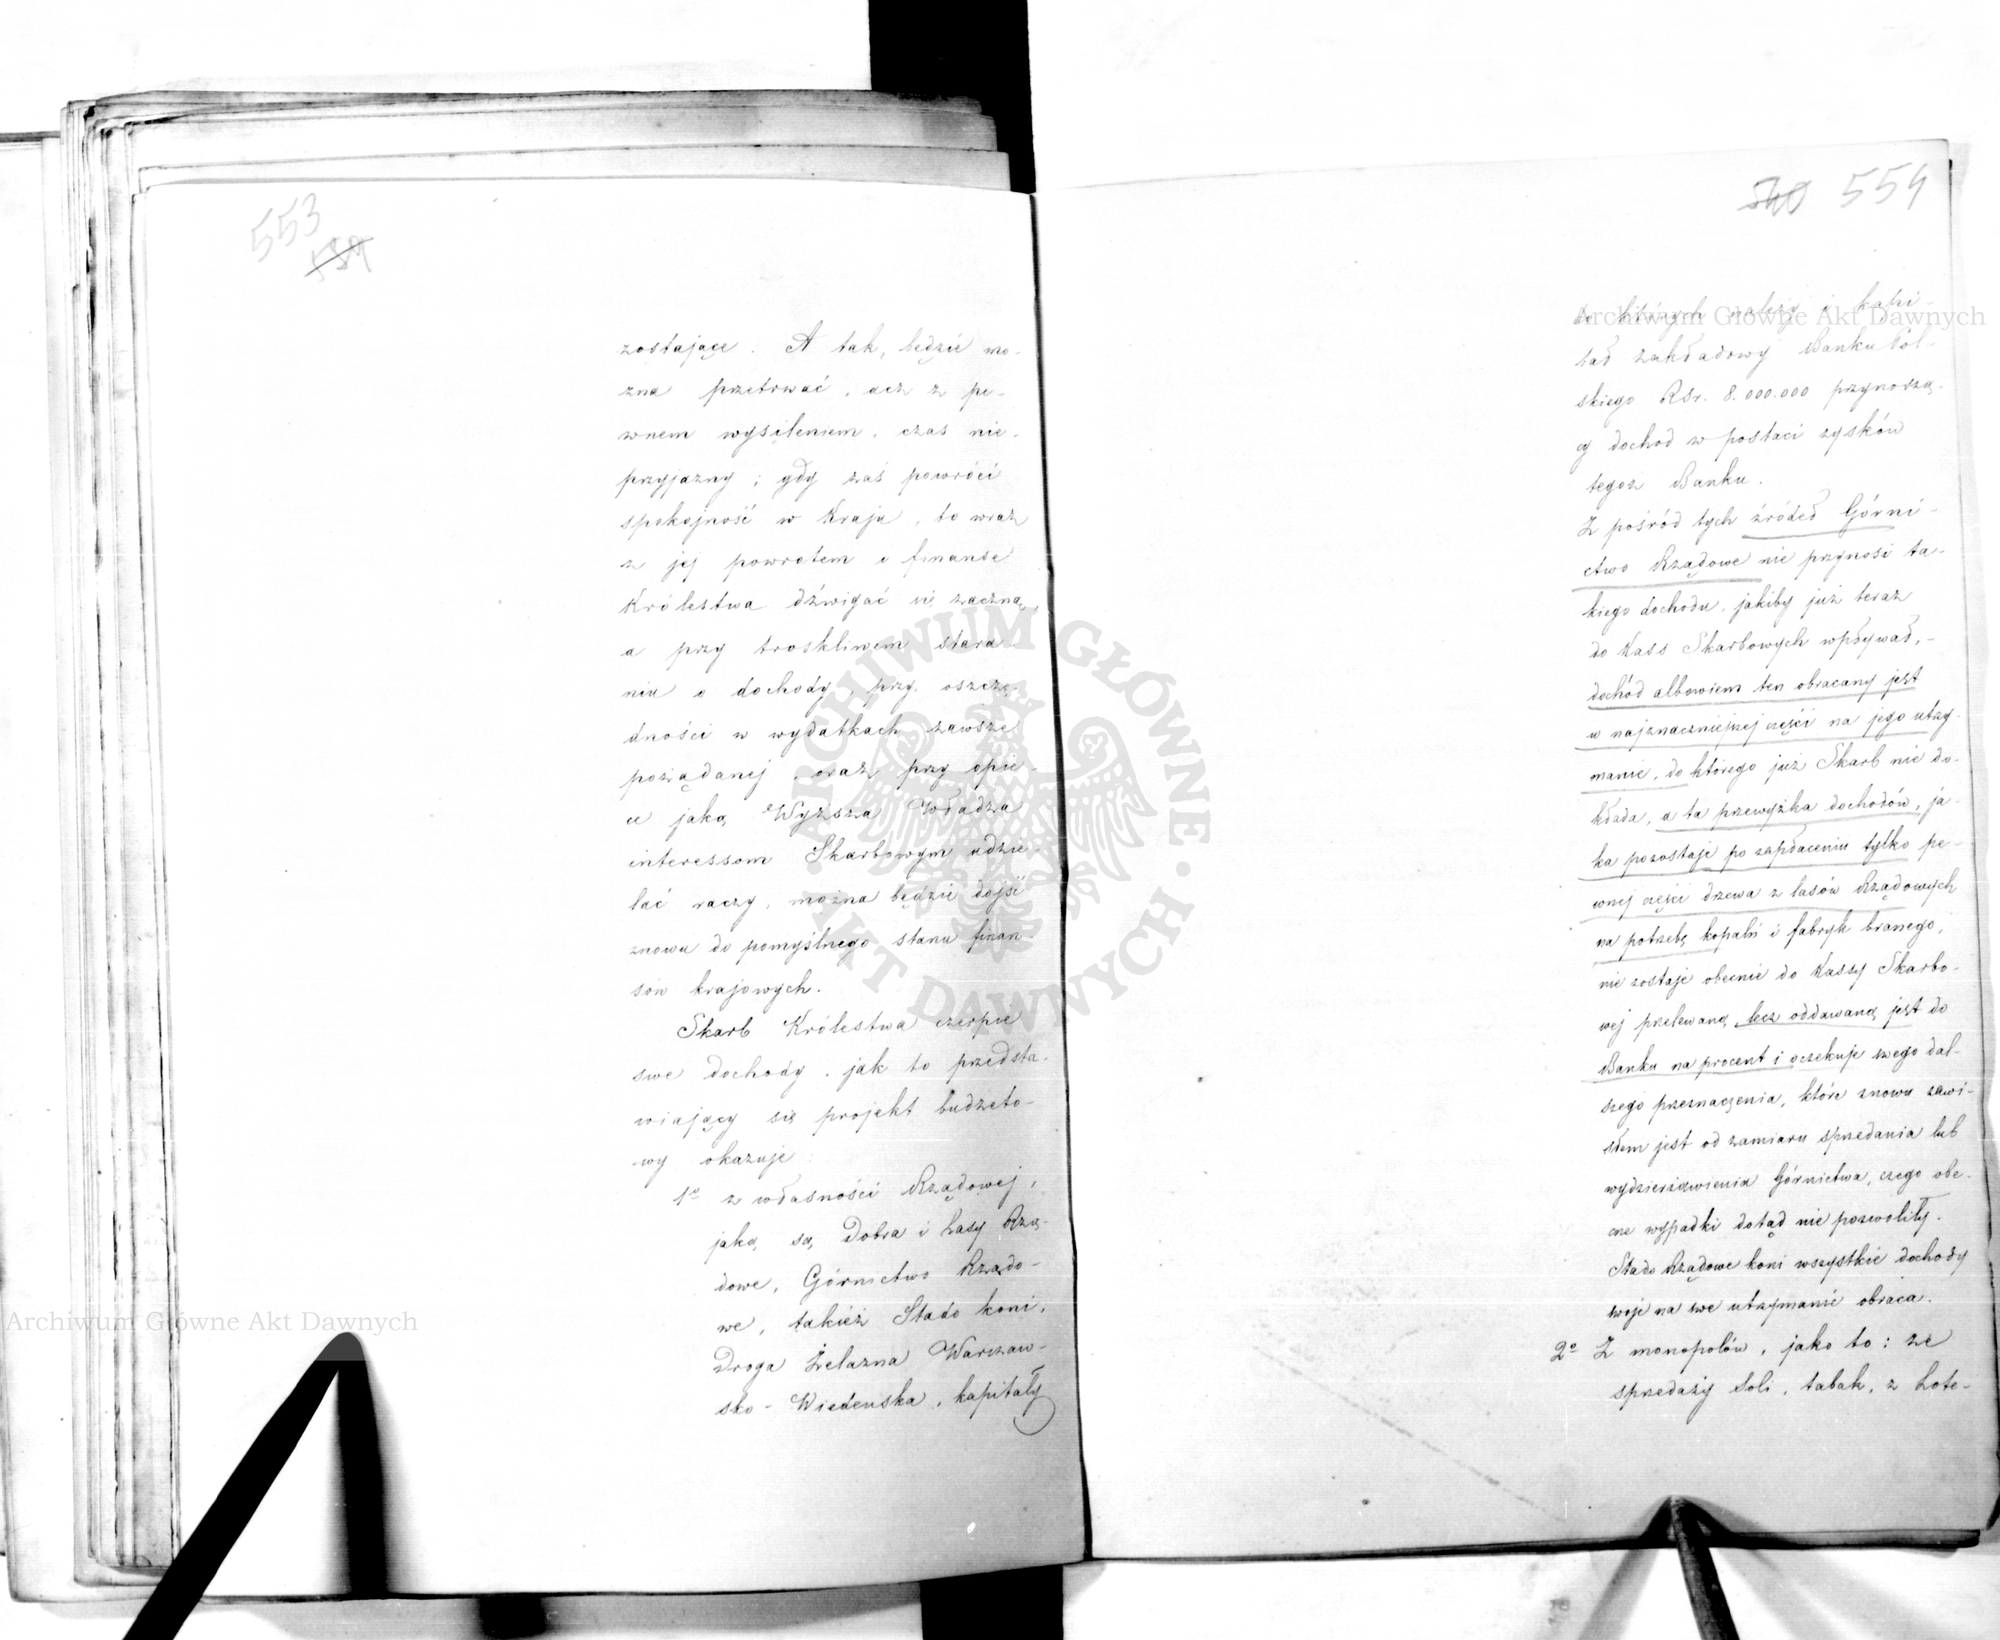 553
539
zostające. A tak, będzie mo-
żna przetrwać, acz z pe-
wnem wysileniem, czas nie-
przyjazny; gdy zaś powróci
spokojność w Kraju, to wraz
z jej powrotem i finanse
Królestwa dźwigać się zaczną,
a przy troskliwem stara-
niu o dochody, przy oszczę-
dności w wydatkach zawsze
pożądanej, oraz przy opie-
ce jaką Wyższa Władza
interessom Skarbowym udzie-
lać raczy, można będzie dojść
znowu do pomyślnego stanu finan-
sów krajowych.
Skarb Królestwa czerpie
swe dochody, jak to przedsta-
wiający się projekt budżeto-
wy okazuje:
1º z własności Rządowej,
jaką są Dobra i Lasy Rzą-
dowe, Górnictwo Rządo-
we, takież Stado koni,
Droga Żelazna Warszaw-
sko-Wiedeńska, kapitały
540 554
do których należy i kapi-
tał zakładowy Banku Pol-
skiego Rsr. 8.000.000 przynoszą-
cy dochod w postaci zysków
tegoż Banku.
Z pośród tych źródeł Górni-
ctwo Rządowe nie przynosi ta-
kiego dochodu, jakiby już teraz
do Kass Skarbowych wpływał,-
dochód albowiem ten obracany jest
w najznaczniejszej części na jego utrzy-
manie, do którego już Skarb nie do-
kłada, a ta przewyżka dochodów, ja-
ka pozostaje po zapłaceniu tylko pe-
wnej części drzewa z lasów Rządowych
na potrzebę kopalń i fabryk branego,
nie zostaje obecnie do Kassy Skarbo-
wej przelewaną, lecz oddawaną jest do
Banku na procent i oczekuje swego dal-
szego przeznaczenia, które znowu zawi-
słem jest od zamiaru sprzedania lub
wydzierżawienia Górnictwa, czego obe-
cne wypadki dotąd nie pozwoliły.
Stado Rządowe koni wszystkie dochody
swoje na swe utrzymanie obraca.
2º Z monopolów, jako to: ze
sprzedaży soli, tabak, z Lote-
Archiwum Główne Akt Dawnych
Archiwum Główne Akt Dawnych
ARCHIWUM GŁÓWNE · AKT DAWNYCH ·